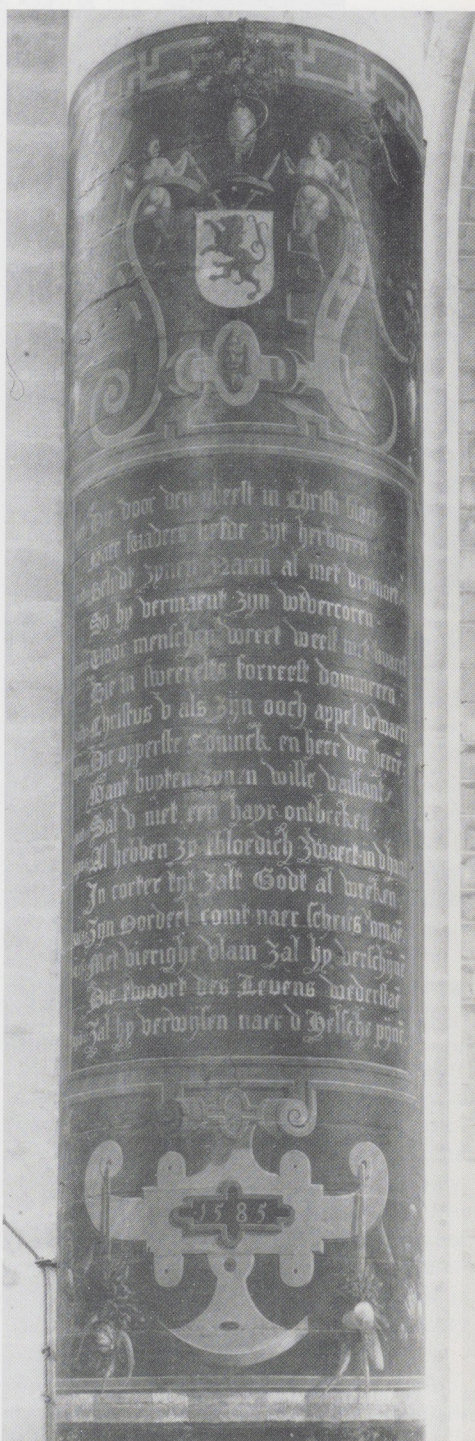 Die door den gheest in Christi bloet
Haer vaders liefde zijt herboren
zynen Naem al met
So hy vermaent zijn wtvercoren.
Voor menschen wreet weest niet
Die in sweerelts forreest domineren
Christus v als zijn ooch appel bewaert
Die opperste Coninck en heer der heerē,
Want buyten zynen wille vaillant,
Sal v niet een hayr ontbreken.
Al hebben zy tbloedich zwaert in dhant
In corter tyt zalt Godt al wreken.
Zyn Oordeel comt naer schrifs
Met vierighe vlam zal hy verschynē
Die twoort des Levens wederstaē
Zal hy verwysen naer d'Helsche pynē.
1585